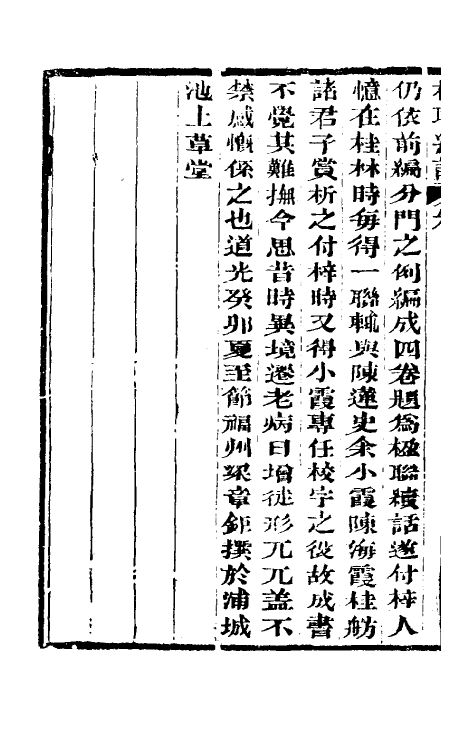 仍依前編分門之例編成四卷題爲楹聯續話遂付梓人
憶在桂林時每得一聯輒與陳蓮史余小霞陳海霞桂舫
諸君子賞析之付梓時又得小霞專任校字之役故成書
不覺其難撫今思昔時異境遷老病日增徒形兀兀蓋不
禁感慨係之也道光癸卯夏至節福州梁章鉅撰於浦城
池上草堂